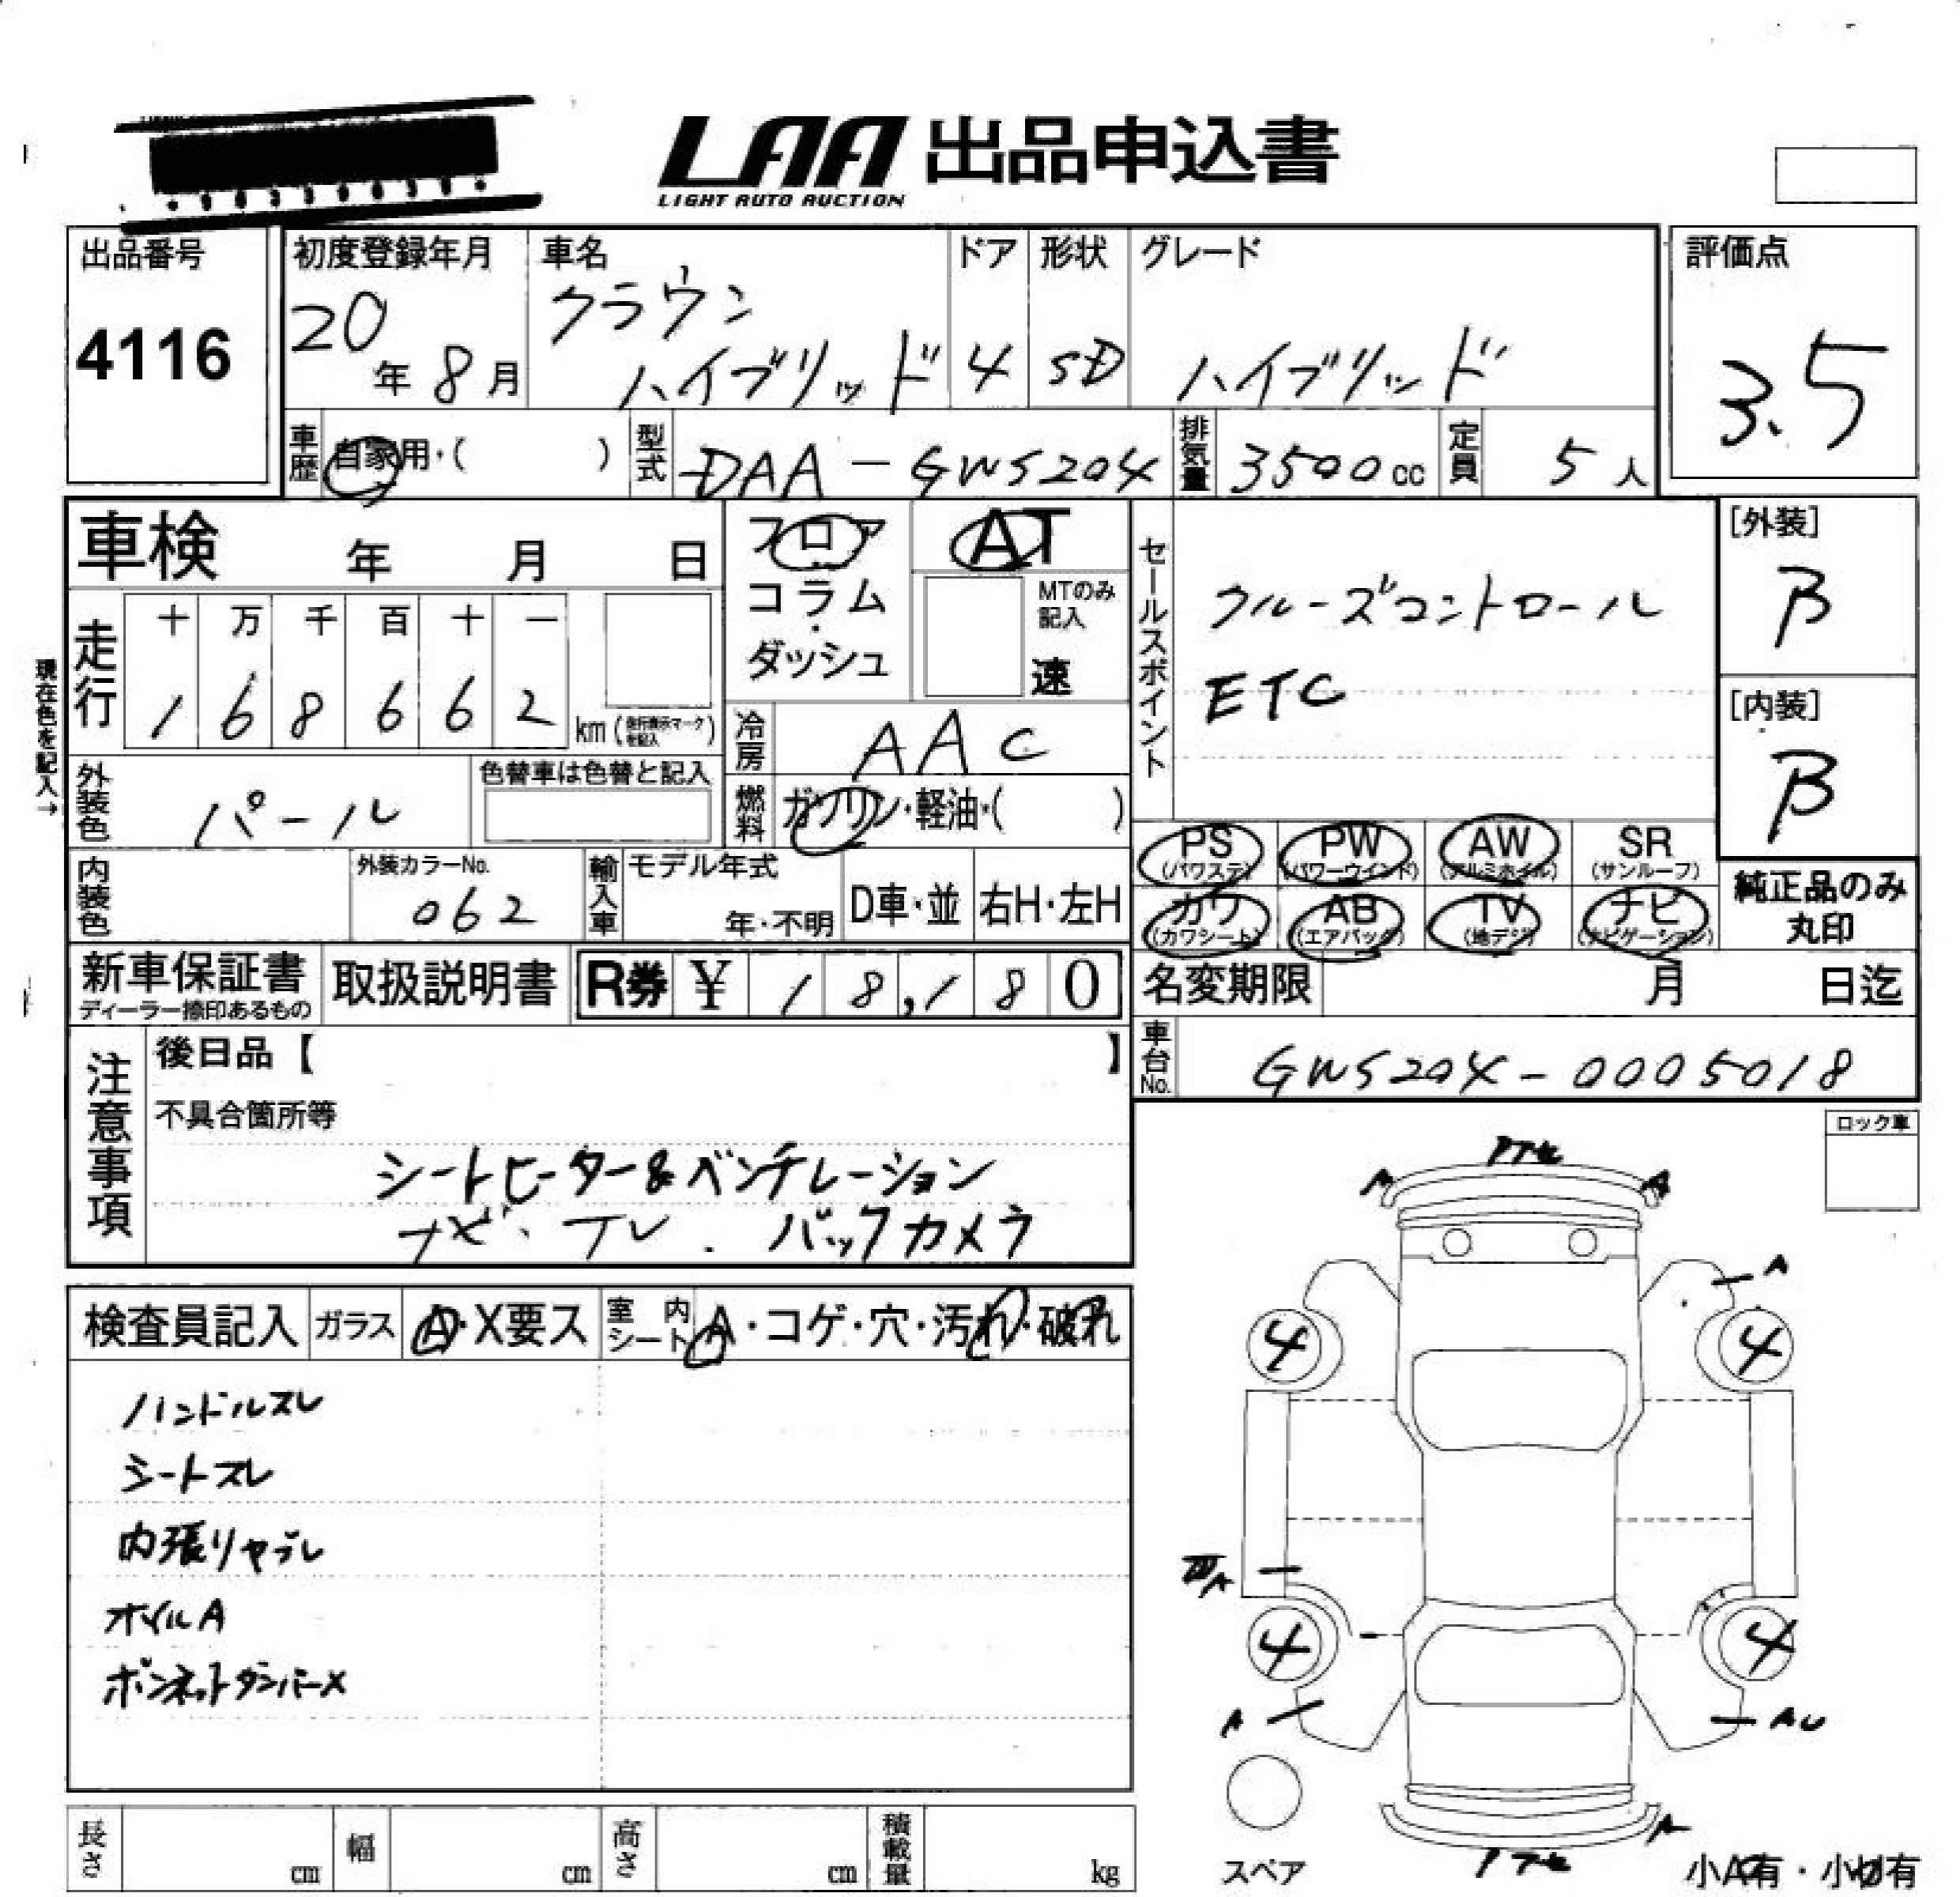 LAA 出品申込書
LIGHT AUTO AUCTION
出品番号
4116
初度登録年月
20年8月
車名
クラウン
ハイブリッド
ドア
4
形状
SD
グレード
ハイブリッド
評価点
3.5
車歴
自家用・( )
型式
DAA-GWS204
排気量
3500cc
定員
5人
車検 年 月 日
フロア
コラム
・
ダッシュ
AT
MTのみ
記入
速
セールスポイント
クルーズコントロール
ETC
[外装]
B
[内装]
B
現在色を記入→
走行
十 万 千 百 十 一
1 6 8 6 6 2
km(走行表示マークを記入)
冷房
AAC
外装色
パール
色替車は色替と記入
燃料
ガソリン・軽油・( )
PS
(パワステ)
PW
(パワーウインド)
AW
(アルミホイル)
SR
(サンルーフ)
カワ
(カワシート)
AB
(エアバック)
TV
(地デジ)
ナビ
(ナビゲーション)
純正品のみ
丸印
内装色
外装カラーNo.
062
輸入車
モデル年式
年・不明
D車・並
右H・左H
新車保証書
ディーラー捺印あるもの
取扱説明書
R券 ¥ 18,180
名変期限 月 日迄
車台No.
GWS204-0005018
注意事項
後日品【 】
不具合箇所等
シートヒーター&ベンチレーション
ナビ、TV. バックカメラ
ロック車
検査員記入
ガラス
A・X要ス
室内シート
A・コゲ・穴・汚れ・破れ
ハンドルスレ
シートスレ
内張りヤブレ
オイルA
ボンネットダンパーX
A
A
A
4
4
A
4
4
A
AU
A
スペア
小A有・小U有
長さ cm
幅 cm
高さ cm
積載量 kg